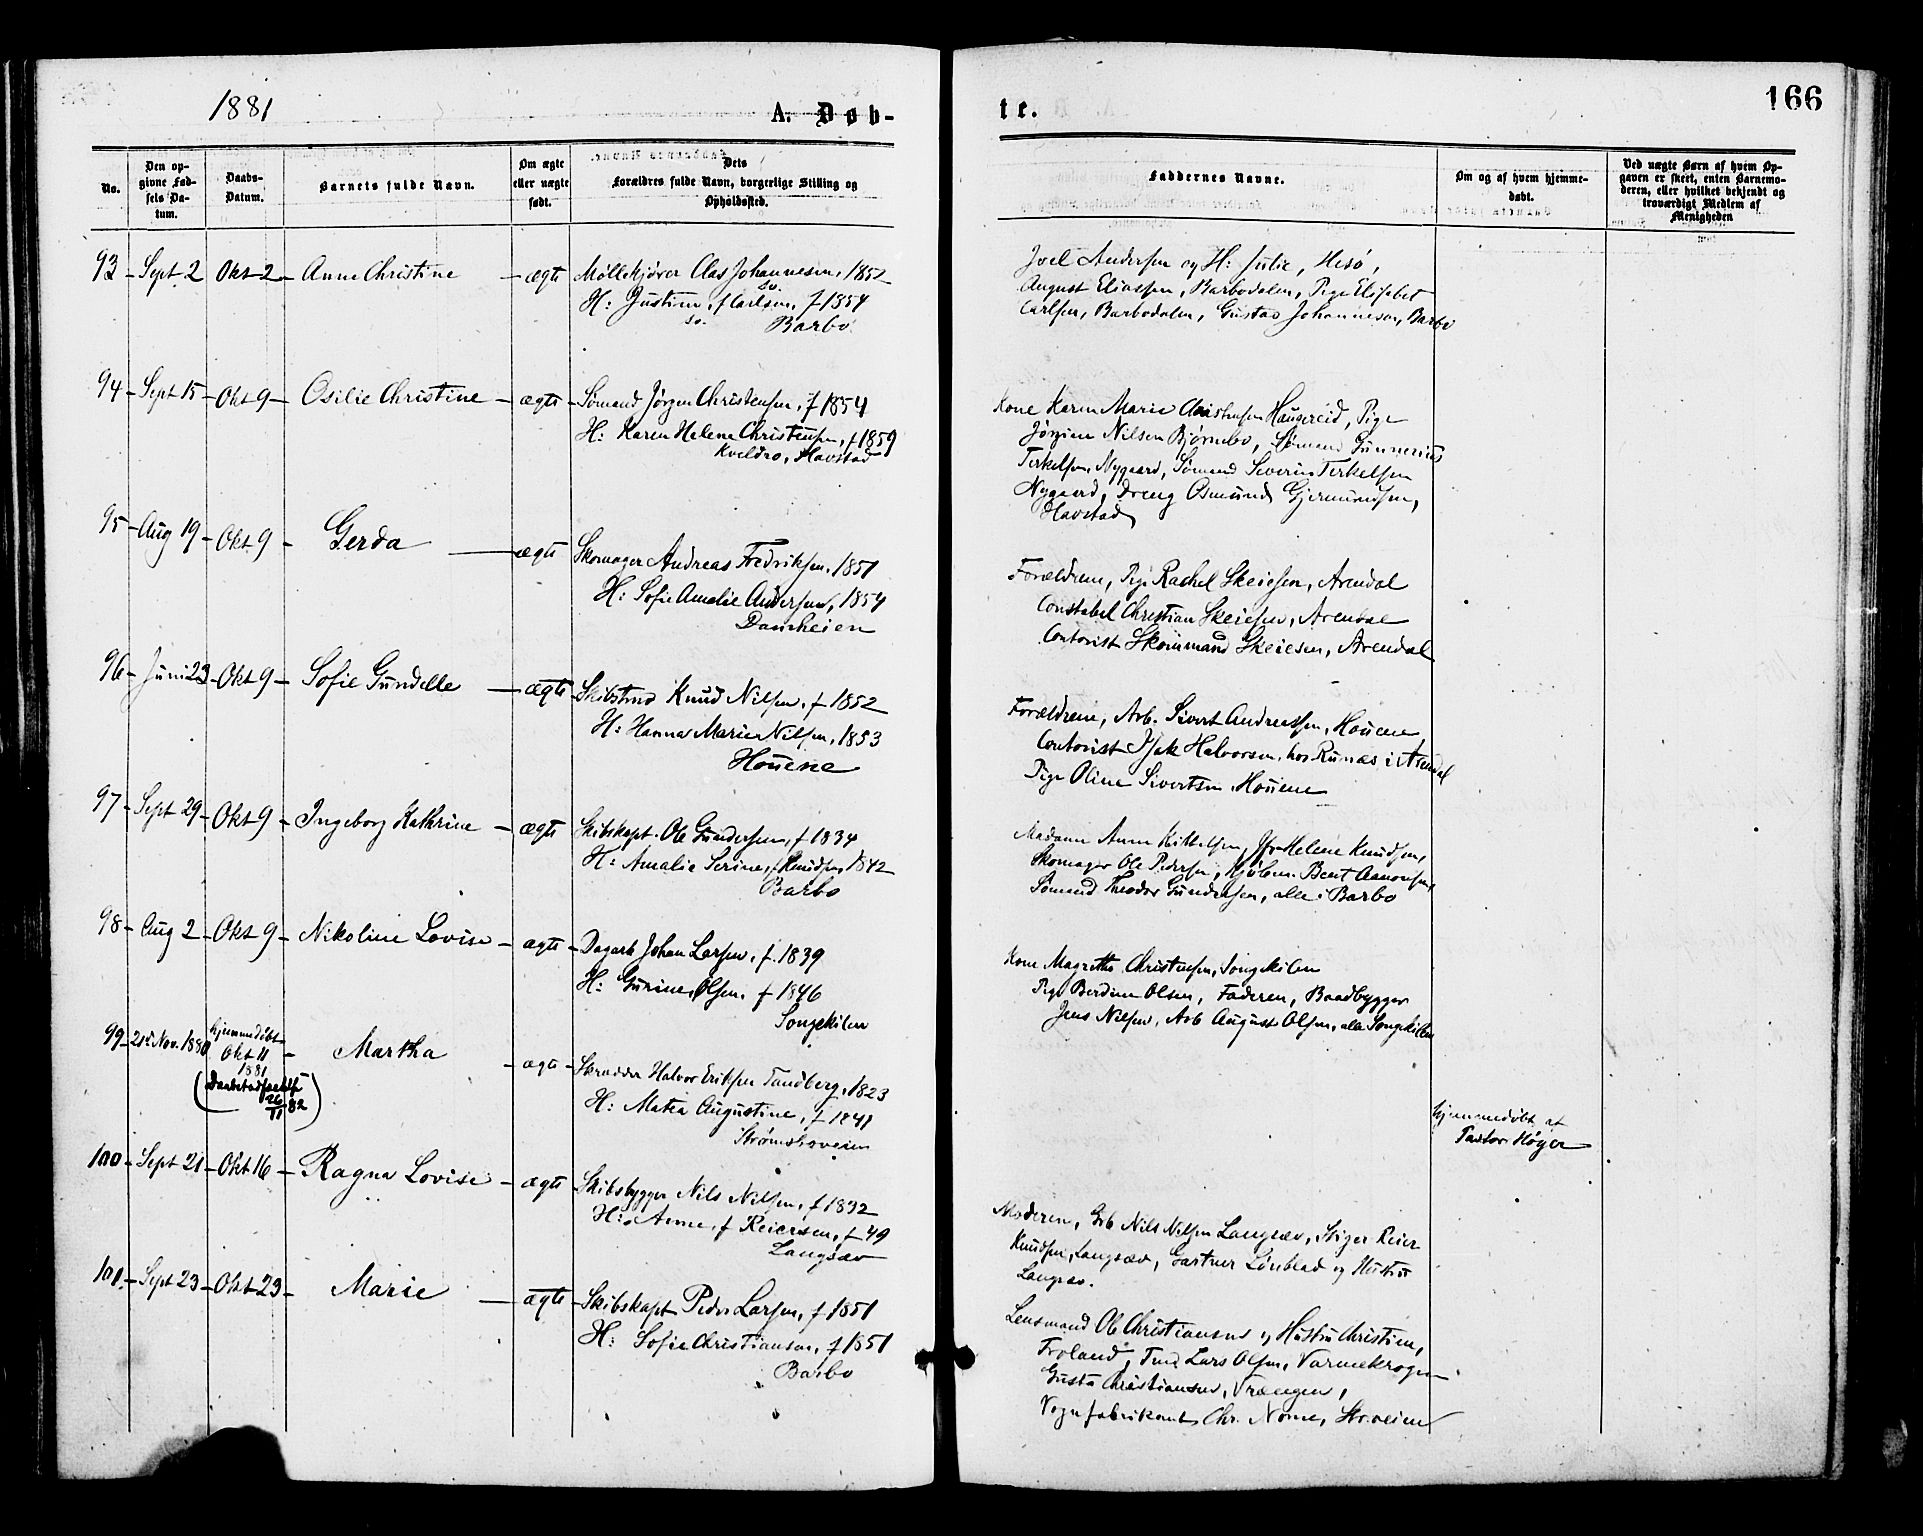 1881
A. Døb-
te.
166
No.
Den op-
givne Fød-
sels Da-
tum.
Daabs-
Datum.
Barnets fulde Navn.
Om ægte
eller uægte
født.
Dets
Forældres fulde Navn, borgerlige Stilling og
Opholdssted.
Faddernes Navne.
Om og af hvem hjemme-
døbt.
Ved uægte Børn af hvem Op-
gaven er skeet, enten Barnemo-
deren, eller hvilket bekjendt og
troværdigt Medlem af
Menigheden
93 Sept 2 Okt 2 Anne Christine ægte Møllekjører Clas Johannesen, 1852
H: Justine, f Carlsen, f 1854
Barbo
Joel Andersen og H: Julie, Hisø,
August Eliassen, Barbodalen, Pige Elisabet
Carlsen, Barbodalen, Gustav Johannesen, Barbo
94 Sept 15 Okt 9 Osilie Christine ægte Sømand Jörgen Christensen, f 1854
H: Karen Helene Christensen, f 1859
Havstad
Kone Karen Marie Christensen Haugereid, Pige
Jörgine Nilsen Bjørnebo, Sømand Gunnerius
Terkelsen, Nygaard, Sømand Severin Terkelsen
Nygaard, Dreng Osmund Gjermundsen,
Havstad
95 Aug 19 Okt 9 Gerda ægte Skomager Andreas Fredriksen, 1851
H: Sofie Amalie Andersen, 1854
Forældrene, Pige Rachel Skeiesen, Arendal
Constabel Christian Skeiesen, Arendal
Contorist Skeiesen, Arendal
96 Juni 23 Okt 9 Sofie Gundelle ægte Skibstmd Knud Nilsen, f 1852
H: Hanna Marie Nilsen, 1853
Houene
Forældrene, Arb. Sivert Andreassen, Houene
Contorist Isak Halvorsen, hos Runæs i Arendal
Pige Oline Sivertsen Houene
97 Sept 29 Okt 9 Ingeborg Kathrine ægte Skibskapt. Ole Gundersen, f 1834
H: Amalie Serine, f Knudsen, 1842
Barbo
Madame Anne Kittelsen, Jfr Helene Knudsen,
Skomager Ole Pedersen, Bent Aanonsen,
Sømand Theodor Gundersen, alle i Barbo
98 Aug 2 Okt 9 Nikoline Lovise ægte Dagarb Johan Larsen, f. 1839
H: Gurine, Olsen, f 1846
Songekilen
Kone Magrethe Christensen, Songekilen
Pige Berdine Olsen, Faderen, Baadbygger
Jens Nilsen, Arb August Olsen, alle Songekilen
99 21de Nov. 1880 hjemmedöbt
Okt 11
1881
82
Martha ægte Skrædder Halvor Eriksen Tandberg, 1823
H: Matea Augustine, f 1841
hjemmedöbt af
Pastor Høyer
100 Sept 21 Okt 16 Ragna Lovise ægte Skibsbygger Nils Nilsen, f 1832
H: Anne, f Reiersen, f 49
Langsæv
Moderen, Nils Nilsen Langsæv, Reier
Knudsen, Langsæv, Gartner Lönblad og Hustru
Langsæv.
101 Sept 23 Okt 23 Marie ægte Skibskapt Peder Larsen, f 1851
H: Sofie Christiansen, f 1851
Barbo
Lensmand Ole Christiansen og Hustru Christine,
Froland, Lars Olsen, Varmekrogen
Gusta Christiansen, Vrængen,
Vognfabrikant Chr. Nome, Str.veien